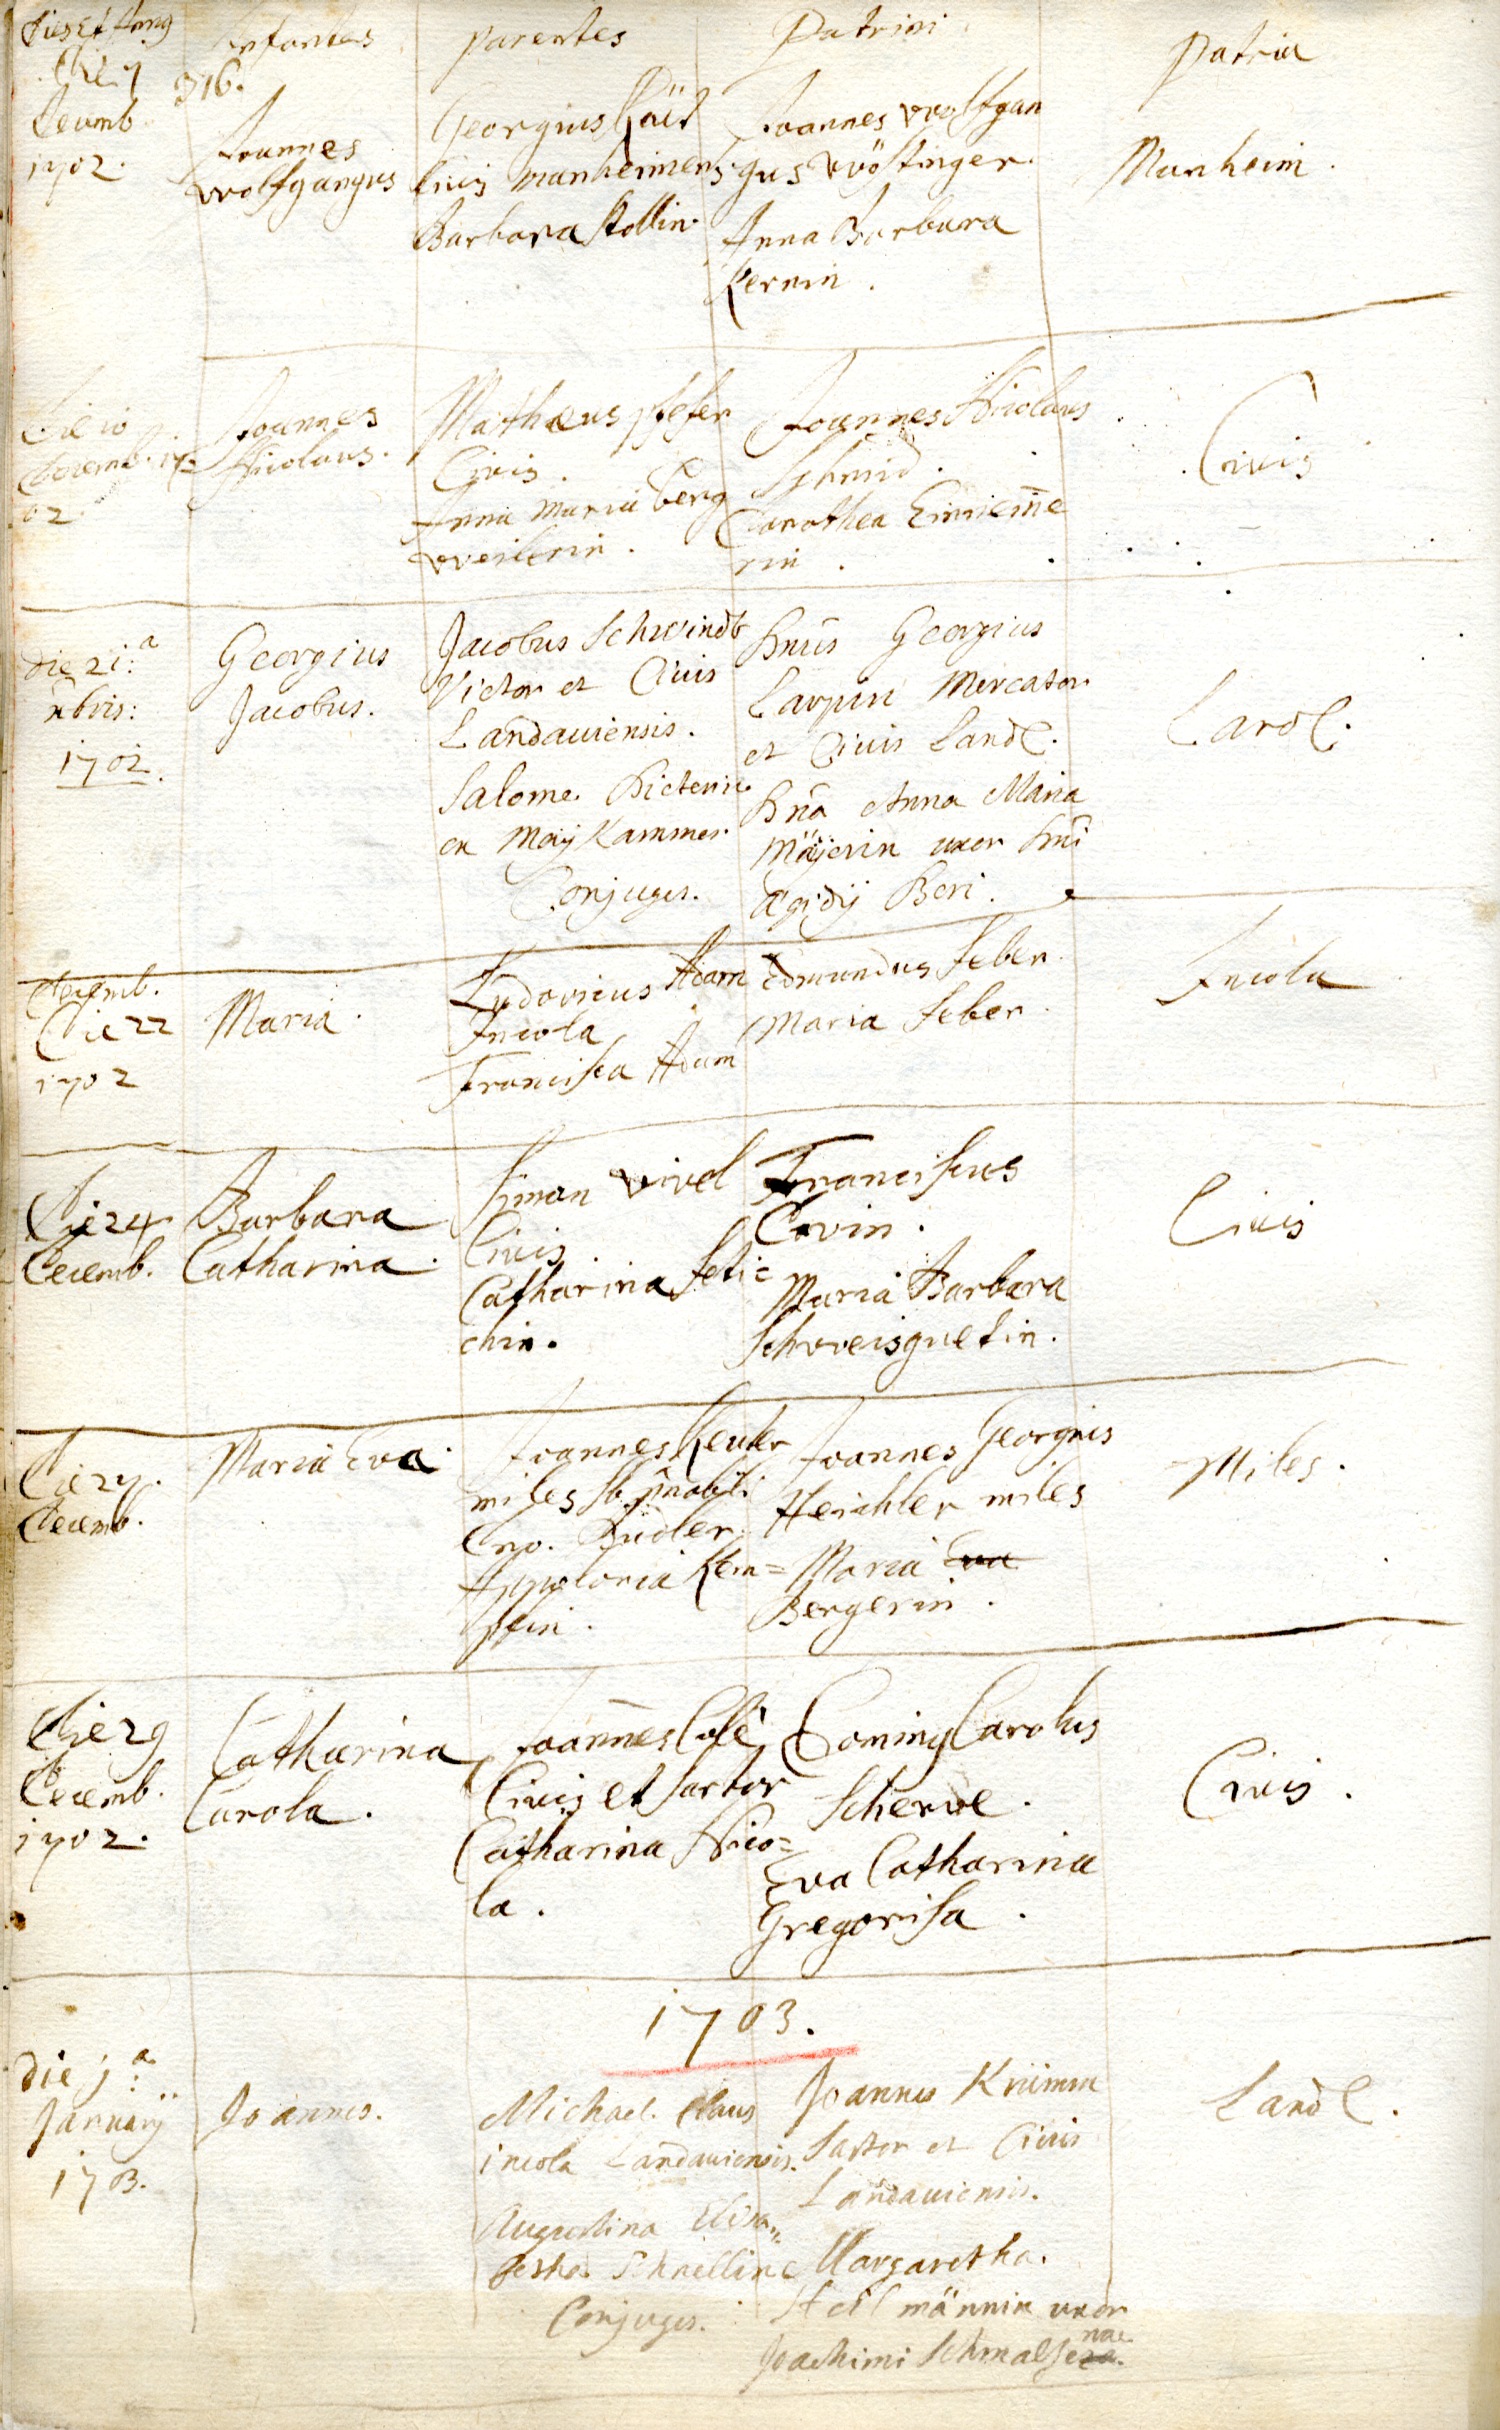 Dies et Ann9 Infantes parentes Patrini Patria
316.
Die 7
Decemb.
1702.
Joannes
wolfgangus
Georgius
Civis manheimens.
Barbara Stollin.
Joannes wolfgan
gus wöstinger.
Anna Barbara
Kernin.
Manheim.
Die 10
Decemb. 17=
02.
Joannes
Nicolaus.
Mathaeus pfefer
Civis.
Anna Maria berg
weilerin.
Joannes Nicolaus
Schmid.
Dorothea
rin.
Civis
die 21:a
xbris:
1702.
Georgius
Jacobus.
Jacobus Schwindt
Vietor et Civis
Landaviensis.
Salome
ex Maÿkammer
Conjuges.
Dnūs Georgius
Mercator
et Civis Land.
Dnā Anna Maria
Mäÿerin uxor Dnī
Ægidÿ Beri.
Land.
Decemb.
Die 22
1702
Maria.
Ludovicus Adam
Incola
Francisca Adam
Edmundus Feber
Maria Feber.
Incola
Die 24
Decemb.
Barbara
Catharina.
Simon vivel
Civis.
Catharina
chin.
Franciscus
Covin.
Maria Barbara
Schweisguetin.
Civis
Die 27.
Decemb.
Maria Eva.
Joannes Reuter
miles
Dno. Budler.
Appolonia Kem=
pfin.
Joannes Georgius
Heichler miles
Maria Eva
Bergerin.
Miles.
Die 29
Decemb.
1702.
Catharina
Carola.
Joannes Colé
Civis et Sartor
Catharina Nico=
la.
Doming Carolus
Scherve.
Eva Catharina
Gregorisa.
Civis.
1703.
die 1:a
Januarÿ
1703.
Joannes.
Michael Claus
incola Landaviensis.
Augustina Elisa„
betha Schnellin
Conjuges.
Joannes Krümm
Sartor et Civis
Landaviensis.
Margaretha
Heilmännin uxor
Joachimi
Land.